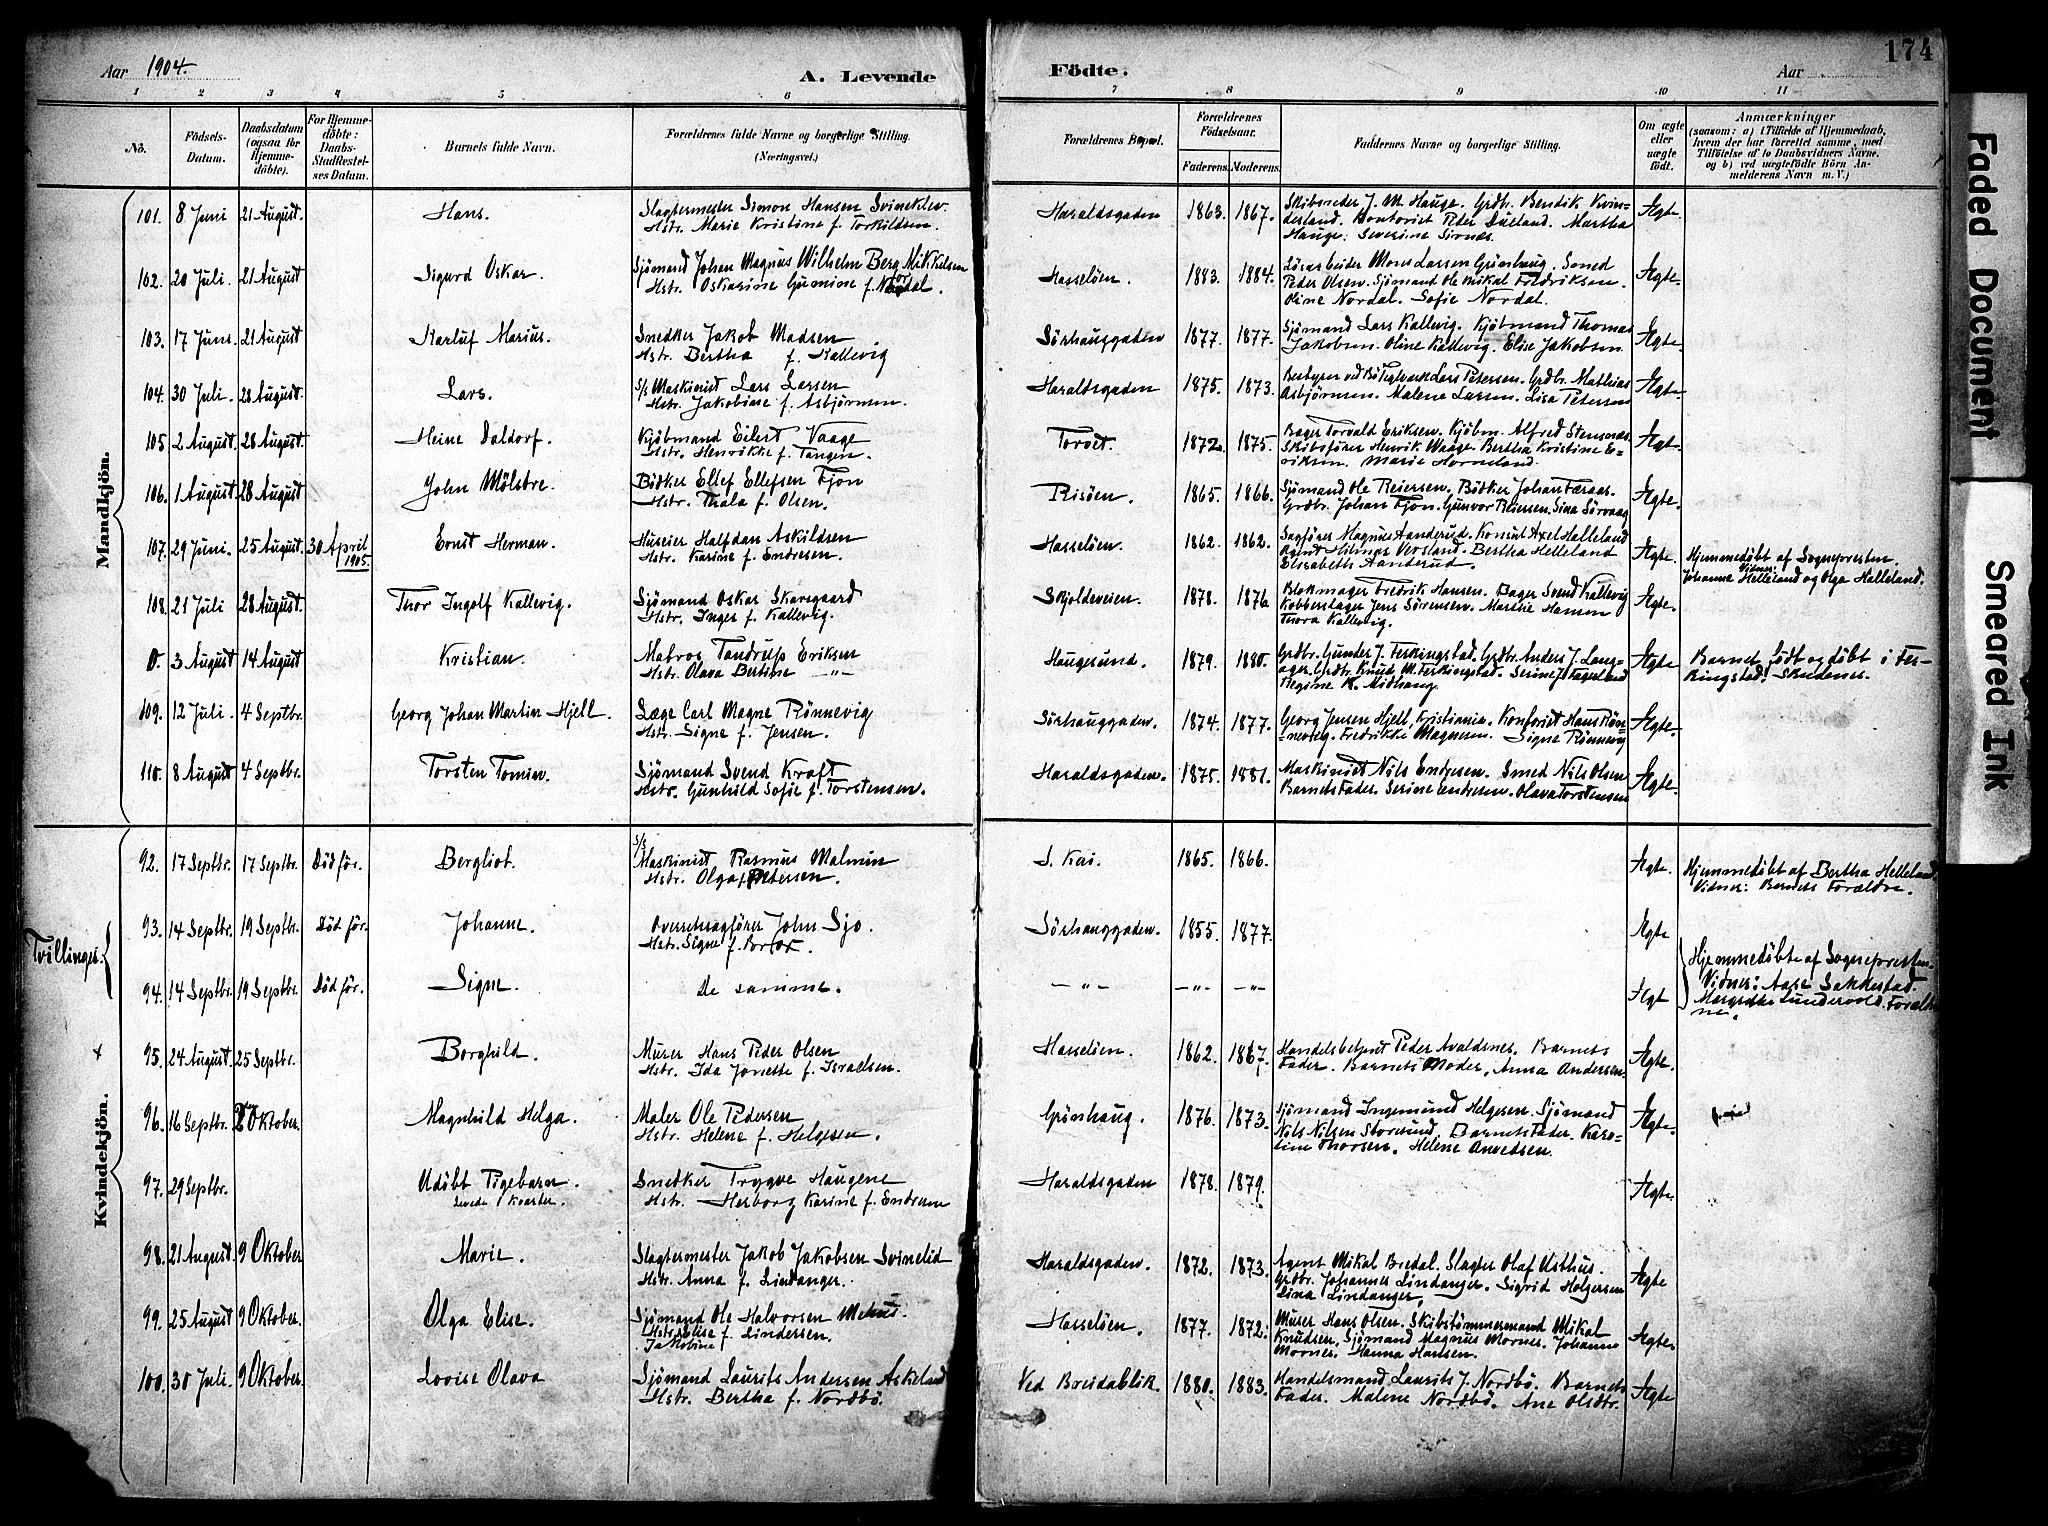 Aar 1904.
A. Levende Födte.
Aar
174
1 2 3 4 5 6 7 8 9 10 11
No.
Födsels-Datum.
Daabsdatum (ogsaa for Hjemme-döbte).
For Hjemme-döbte: Daabs-Stadfestel-ses Datum.
Barnets fulde Navn.
Forældrenes fulde Navne og borgerlige Stilling. (Næringsvei.)
Forældrenes Bopæl.
Forældrenes Födselsaar.
Faderens. Moderens.
Faddernes Navne og borgerlige Stilling.
Om ægte eller uægte födt.
Anmærkninger
(saasom: a) i Tilfælde af Hjemmedaab,
hvem der har forrettet samme, med
Tilföielse af to Daabsvidners Navne.
og b) ved uægtefödte Börn An-
melderens Navn m. V.)
Mandkjön.
101. 8 Juni 21 August. Hans. Slagtermester Simon Hansen Svineklev. Hstr. Marie Kristine f. Torkildsen. Haraldsgaden 1863. 1867. Skibsreder J. M. Hauge. Grdbr. Bendik Kvin-
desland. Kontorist Peder Lueland. Martha
Hauge. Severine Sirnæs. Ægte.
102. 20 Juli. 21 August Sigurd Oskar. Sjömand Johan Magnus Wilhelm Berg Mikkelsen Hstr. Oskarine Gumine f. Nordal. Hasselöen. 1883. 1884. Lösarbeider Mons Larsen Grönhaug. Smed
Peder Olsen. Sjömand Ole Mikal Fredriksen.
Oline Nordal. Sofie Nordal. Ægte.
103. 17 Juni. 21 August Karluf Marius. Snedker Jakob Madsen Hstr. Bertha f. Kallevig Sörhauggaden 1877. 1877. Sjömand Lars Kallevig. Kjöbmand Thomas
Jakobsen. Oline Kallevig. Elise Jakobsen. Ægte.
104. 30 Juli. 28 August. Lars. S/s Maskinist Lars Larsen Hstr. Jakobine f. Asbjörnsen. Haraldsgaden 1875. 1873. Bestyrer ved Bö Teglverk Lars Petersen. Grdbr. Mathias
Asbjörnsen. Malene Larsen. Lisa Petersen Ægte.
105 2 August. 28 August. Heine Daldorf. Kjöbmand Eilert Vaage Hstr. Henrikke f. Tangen. Torvet. 1872. 1875. Bager Torvald Eriksen. Kjöbm. Alfred Stensnæs.
Skibsförer Henrik Waage. Bertha Kristine E-
riksen. Marie Horneland. Ægte.
106. 1 August. 28 August John Mölstre. Bödker Ellef Ellefsen Fjon Hstr. Thala f. Olsen. Risöen. 1865. 1866. Sjömand Ole Reiersen. Bödker Johan Færaas.
Grdbr. Johan Fjon. Gunvor Reiersen. Sina Sörvaag Ægte.
107. 29 Juni. 25 August. 30 April 1905. Ernst Herman. Huseier Halfdan Askildsen Hstr. Karine f. Endresen. Hasselöen. 1862. 1862. Sagförer Magnus Aanderud. Konsul Axel Halleland
Agent Hilmar Versland. Bertha Helleland
Elisabeth Aanderud. Ægte. Hjemmedöbt af Sognepresten.
Vidner:
Johanne Helleland og Olga Halleland.
108. 21 Juli 28 August. Thor Ingolf Kallevig. Sjömand Oskar Skarsgaard Hstr. Inger f. Kallevig. Skjoldeveien. 1878. 1876 Blokmager Fredrik Hansen. Bager Svend Kallevig
Kobberslager Jens Sörensen. Marthe Hansen
Thora Kallevig. Ægte.
0. 3 August 14 August Kristian. Matros Tandrup Eriksen Hstr. Olava Bertine —"— Haugesund. 1879. 1880. Grdbr. Gunder J. Ferkingstad. Grdbr. Anders J. Lang-
aager. Grdbr. Knud M. Ferkingstad. Serine J. Fagerland
Regine K. Midhaug. Ægte Barnet födt og döbt i Fer-
kingstad. Skudenes.
109. 12 Juli. 4 Septbr. Georg Johan Martin Hjell. Læge Carl Magne Rönnevig Hstr. Signe f. Jensen. Sörhauggaden. 1874. 1877. Georg Jensen Hjell, Kristiania. Kontorist Hans Rön-
nevig. Fredrikke Magnesen. Signe Rönnevig Ægte.
110. 8 August 4 Septbr. Torsten Tomin. Sjömand Svend Kraft Hstr. Gunhild Sofie f. Torstensen. Haraldsgaden. 1875. 1881. Maskinist Nils Endresen. Smed Nils Olsen
Barnets Fader. Serine Endresen. Olava Torstensen Ægte.
Kvindekjön.
92. 17 Septbr. 17 Septbr. Död för. Bergliot. S/s Maskinist Rasmus Malmin Hstr. Olga f. Petersen. S. Kai. 1865. 1866. Ægte. Hjemmedöbt af Bertha Helleland.
Vidner: Barnets Forældre.
Tvillinger.
93. 14 Septbr. 19 Septbr. Död för. Johanne. Overretssagförer John Sjo. Hstr. Signe f. Sörhauggaden. 1855. 1877. Ægte
94. 14 Septbr. 19 Septbr. Död för. Signe. De samme. —"— —"— —"— Ægte Hjemmedöbte af Sognepresten.
Vidner: Aase Sandestad.
Margrethe Lundervold. Foræld-
ne.
95. 24 August 25 Septbr. Borghild. Murer Hans Peder Olsen Hstr. Ida Jonette f. Israelsen. Hasselöen. 1862. 1867. Handelsbetjent Peder Avaldsnes. Barnets
Fader. Barnets Moder. Anna Andersen. Ægte.
96. 16 Septbr. 2 Oktober. Magnhild Helga. Maler Ole Pedersen Hstr. Helene f. Helgesen. Grönhaug. 1876. 1873. Sjömand Ingemund Helgesen. Sjömand
Nils Nilsen Storesund. Barnets Fader. Karo-
line Thorsen. Helene Anvedsen. Ægte.
97. 29 Septbr. Udöbt Pigebarn. Levede 1 Kvarter. Snedker Trygve Haugene Hstr. Herborg Karine f. Endresen Haraldsgaden 1878. 1879. Ægte.
98. 21 August. 9 Oktober Marie. Slagtermester Jakob Jakobsen Svinelid Hstr. Anna f. Lindanger. Haraldsgaden. 1872. 1873. Agent Mikal Bredal. Slagter Olaf Østhus.
Grdbr. Johannes Lindanger. Sigrid Holgersen
Lina Lindanger. Ægte
99. 25 August 9 Oktober. Olga Elise. Sjömand Ole Halvorsen Hstr. Elise Jakobine f. Lindersen. Hasselöen. 1877. 1872. Murer Hans Olsen. Skibstömmermand Mikal
Knudsen. Sjömand Magnus Mornes. Johanne
Mornes. Hanna Hansen. Ægte.
100. 30 Juli. 9 Oktober. Lovise Olava Sjömand Laurits Andersen Askeland Hstr. Bertha f. Nordbö. Ved Breidablik. 1880. 1883. Handelsmand Laurits J. Nordbö. Barnets
Fader. Malene Nordbö. Ane Olsdtr. Ægte
Faded Document
Smeared Ink